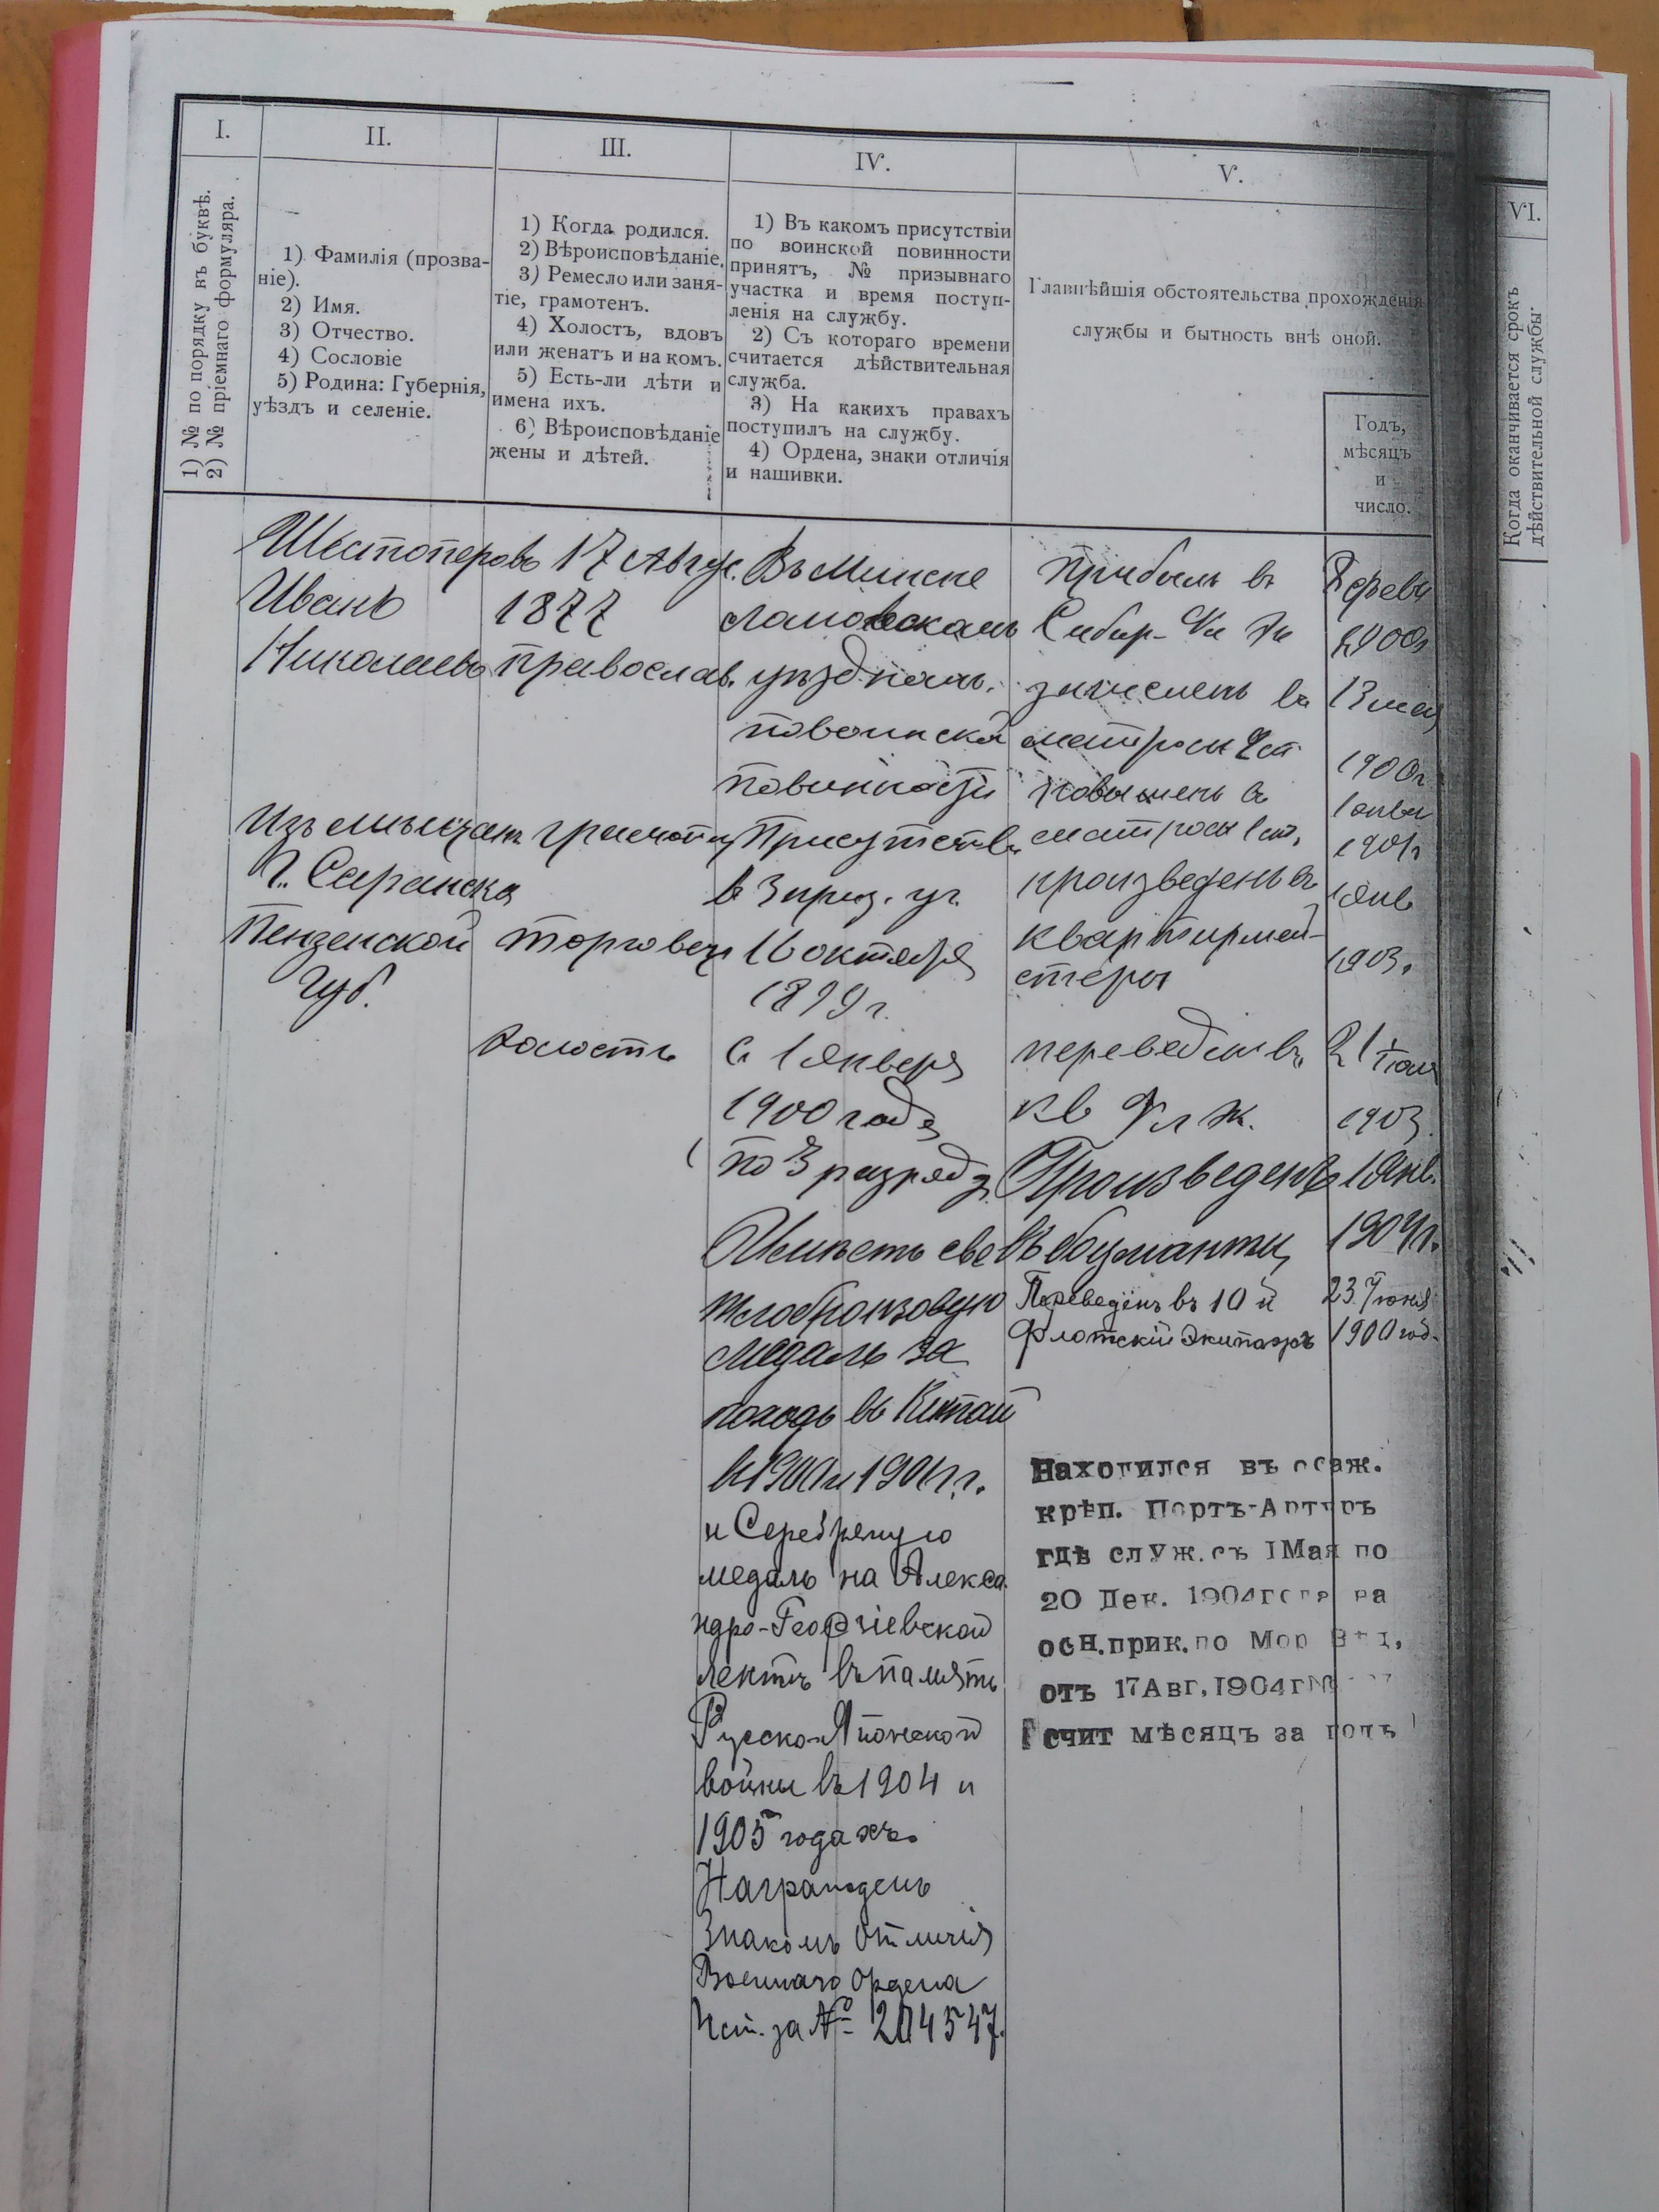 I.
1) № по порядку въ буквѣ.
2) № пріемнаго формуляра.
II.
1) Фамилія (прозва-
ніе).
2) Имя.
3) Отчество.
4) Сословіе
5) Родина: Губернія,
уѣздъ и селеніе.
III.
1) Когда родился.
2) Вѣроисповѣданіе.
3) Ремесло или заня-
тіе, грамотенъ.
4) Холостъ, вдовъ
или женатъ и на комъ.
5) Есть-ли дѣти и
имена ихъ.
6) Вѣроисповѣданіе
жены и дѣтей.
IV.
1) Въ какомъ присутствіи
по воинской повинности
принятъ, № призывнаго
участка и время поступ-
ленія на службу.
2) Съ котораго времени
считается дѣйствительная
служба.
3) На какихъ правахъ
поступилъ на службу.
4) Ордена, знаки отличія
и нашивки.
V.
Главнѣйшія обстоятельства прохожденія
службы и бытность внѣ оной.
Годъ,
мѣсяцъ
и
число.
VI.
Когда оканчивается срокъ
дѣйствительной службы.
Шестоперовъ
Иванъ
Николаевъ
Изъ мѣщанъ
г. Саранска
Пензенской
Губ.
17 Авгус.
1877
Православ.
грамотн
торговец
холостъ
Въ
уѣздномъ
по воинской
повинности
Присутстви
в 3 приз. уч.
16 октября
1899 г.
С 1 Января
1900 года
по 3 разряду
Имѣетъ свѣ
тлобронзовую
медаль за
походъ въ Китай
в 1900 и 1901 г.г.
и Серебряную
медаль на Алекса
ндро-Георгіевской
лентѣ въ память
Русско-Японской
войны въ 1904 и
1905 годахъ.
Награжденъ
Знакомъ отличія
Военнаго Ордена
4 ст. за № 204547.
Прибылъ в
Сибир. Фл Эк
зачисленъ въ
матросы 2 ст
13 мая
1900 г
матросы 1 ст.
1 янва
1901
произведенъ въ
квартирмей-
стеры
1 янв
1903.
переведенъ въ
Кв Фл Эк.
21
1903.
Произведенъ
въ боцманматы
1 Янв.
1904 г.
Переведенъ въ 10 й
флотскій экипажъ
23
Находился въ осаж.
крѣп. Портъ-Артуръ
гдѣ служ. съ I Мая по
20 Дек. 1904 года на
осн. прик. по Мор Вѣд,
отъ 17 Авг, I904 г №
счит мѣсяцъ за годъ